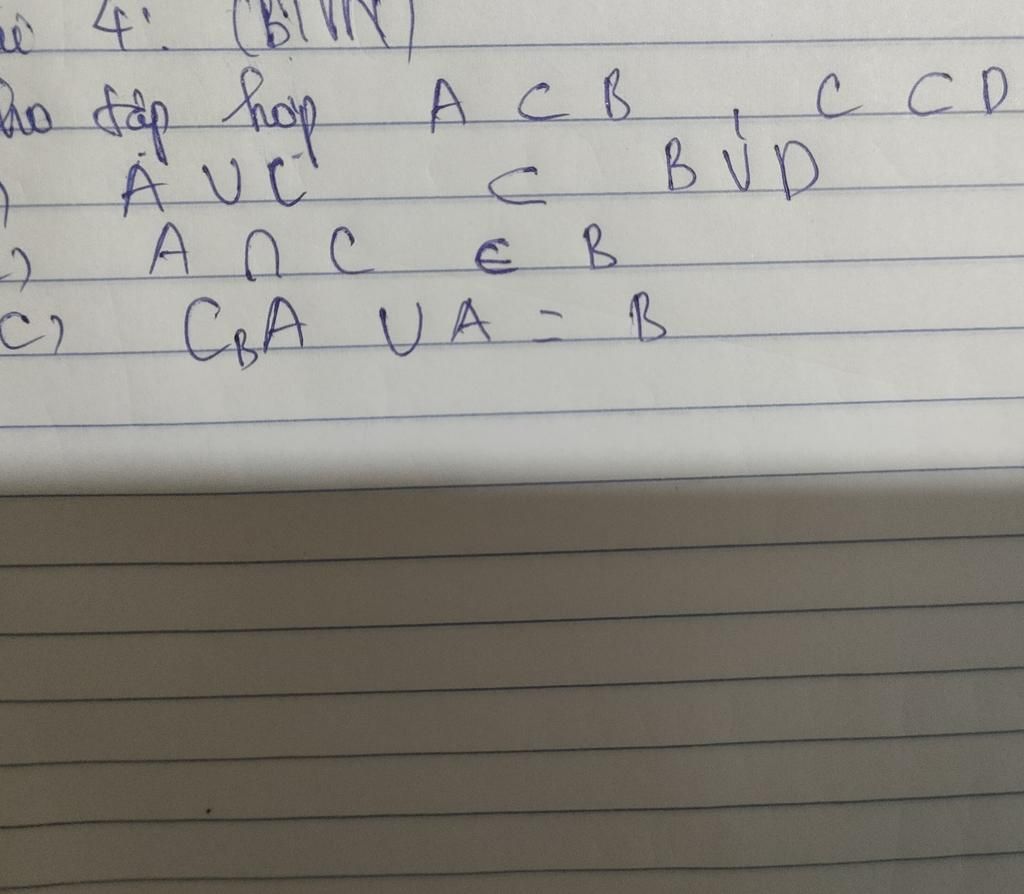 4: (BTVN)
tập hợp A ⊂ B , C ⊂ D
) A ∪ C ⊂ B ∪ D
) A ∩ C ∈ B
c) C_B A ∪ A = B